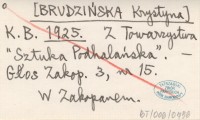 [BRUDZIŃSKA Krystyna]
K. B. 1925. Z Towarzystwa
"Sztuka Podhalańska". –
Głos Zakop. 3, na 15.
W Zakopanem.
BT/000/0490